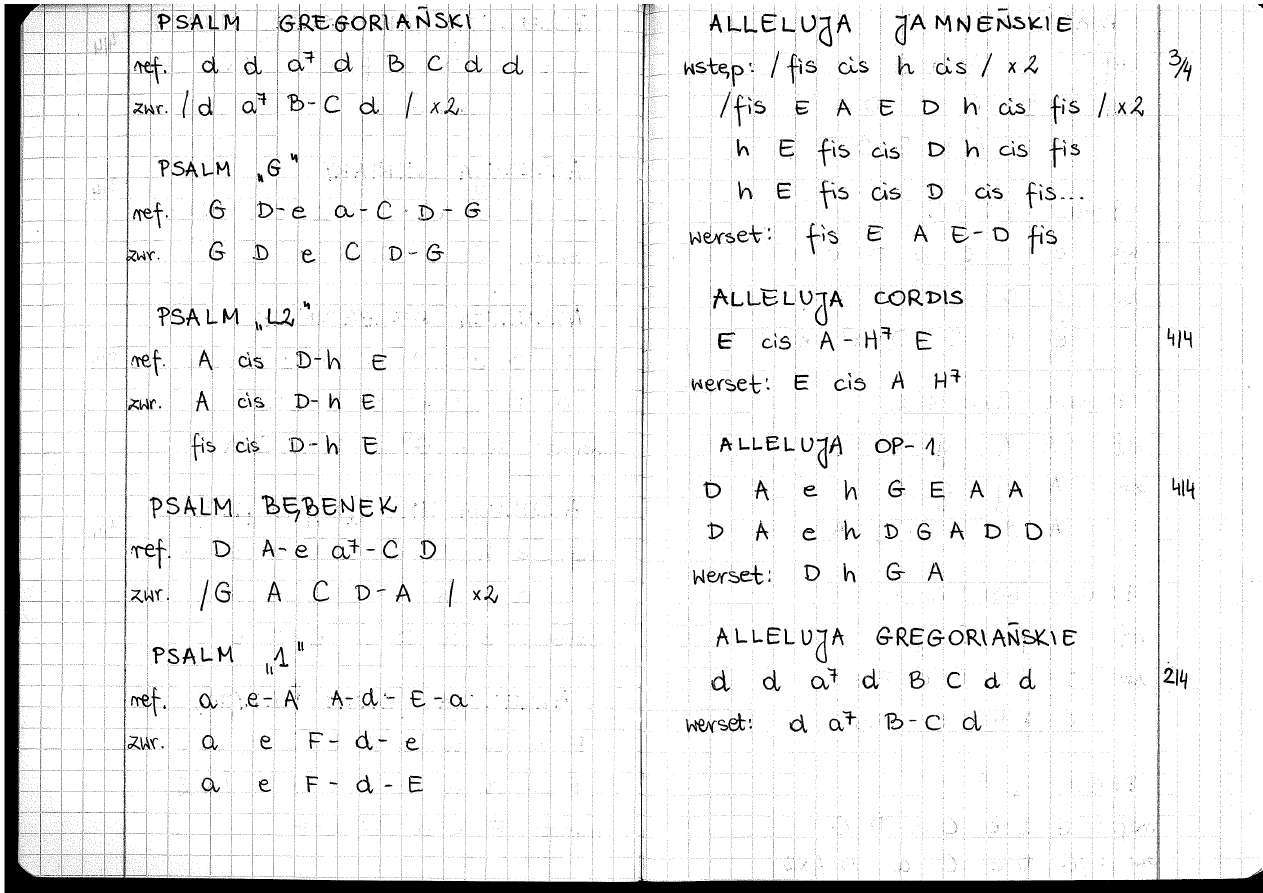 PSALM GREGORIAŃSKI
ref. d d a⁷ d B C d d
zwr. / d a⁷ B-C d / x2
PSALM „G"
ref. G D-e a-C D-G
zwr. G D e C D-G
PSALM „L2"
ref. A cis D-h E
zwr. A cis D-h E
fis cis D-h E
PSALM BĘBENEK
ref. D A-e a⁷-C D
zwr. /G A C D-A / x2
PSALM „1"
ref. a e-A A-d-E-a
zwr. a e F-d-e
a e F-d-E
ALLELUJA JAMNEŃSKIE
wstęp: / fis cis h cis / x2 3/4
/fis E A E D h cis fis / x2
h E fis cis D h cis fis
h E fis cis D cis fis...
werset: fis E A E-D fis
ALLELUJA CORDIS
E cis A-H⁷ E 4/4
werset: E cis A H⁷
ALLELUJA OP-1
D A e h G E A A 4/4
D A e h D G A D D
werset: D h G A
ALLELUJA GREGORIAŃSKIE
d d a⁷ d B C d d 2/4
werset: d a⁷ B-C d